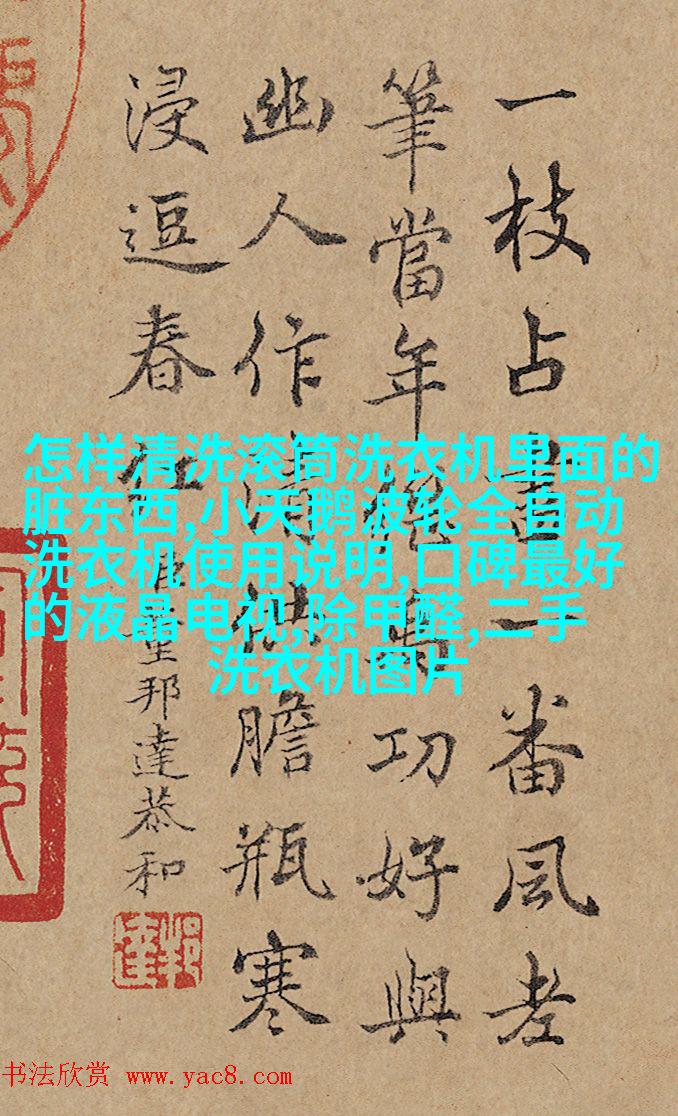 一枝占一番風老
筆當年功好與
幽人作清供膽瓶寒
浸逗春紅
臣董邦達恭和
怎样清洗滚筒洗衣机里面的
脏东西,小天鹅波轮全自动
洗衣机使用说明,口碑最好
的液晶电视,除甲醛,二手
洗衣机图片
书法欣赏 www.yac8.com